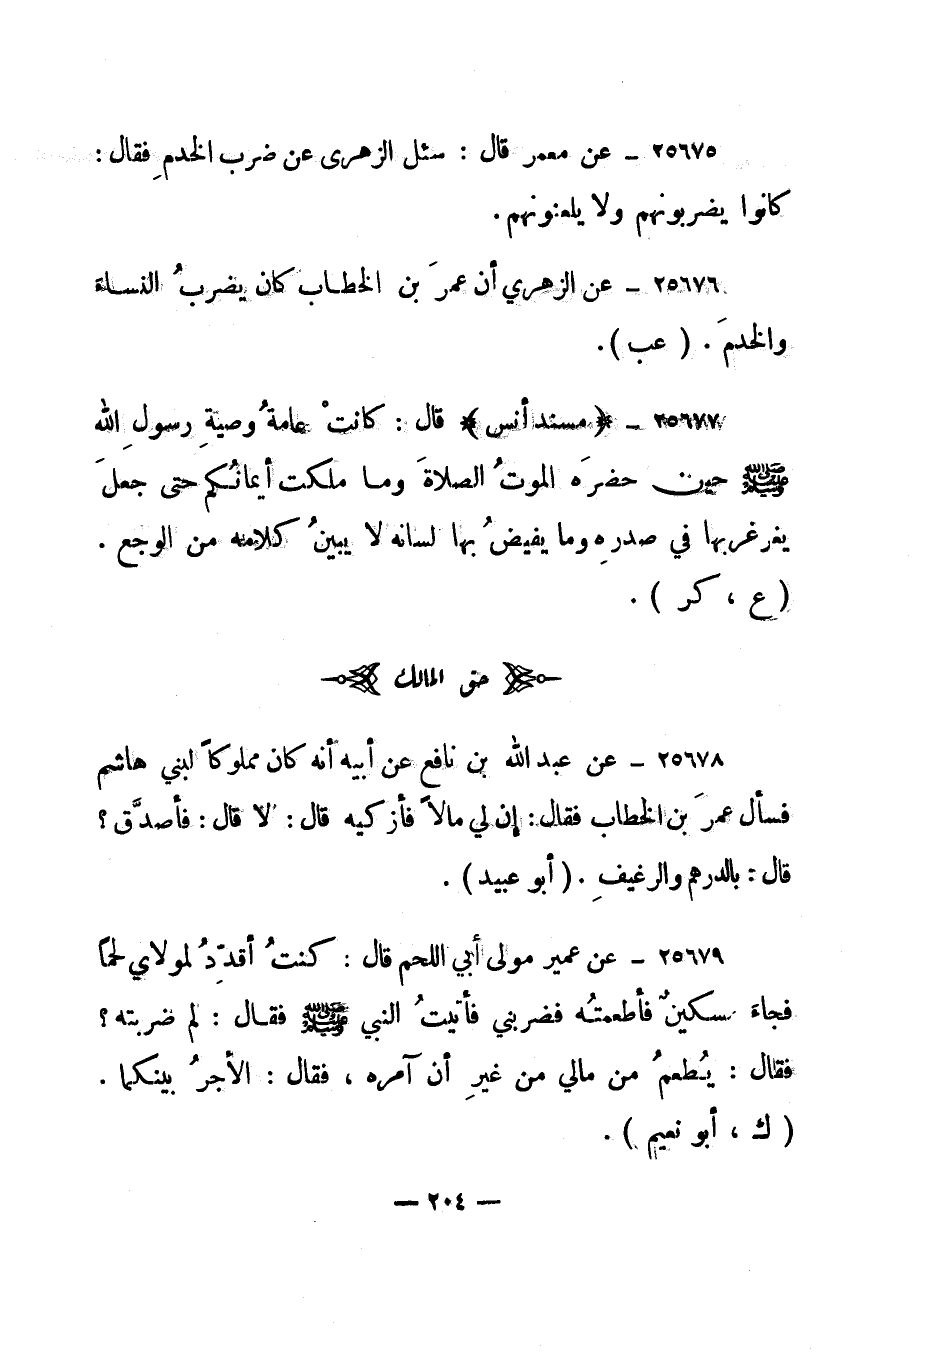 ٢٥٦٧٥ ـ عن معمر قال : سئل الزهرى عن ضرب الخدمِ فقال :
كانوا يضربونهم ولا يلعنونهم .
٢٥٦٧٦ ـ عن الزهري أن عمرَ بن الخطاب كان يضربُ النساءَ
والخدمَ . ( عب ) .
٢٥٦٧٧ ـ ﴿ مسند أنس ﴾ قال : كانتْ عامةُ وصيةِ رسولِ الله
ﷺ حين حضرَه الموتُ الصلاةَ وما ملكت أيمانُكم حتى جعلَ
يغرغربها في صدرِه وما يفيضُ بها لسانه لا يبينُ كلامه من الوجع .
( ع ، كر ) .
حق المالك
٢٥٦٧٨ ـ عن عبد الله بن نافع عن أبيه أنه كان مملوكاً لبني هاشم
فسأل عمرَ بن الخطاب فقال : إن لي مالاً فأزكيه قال : لا قال : فأصدَّق ؟
قال : بالدرهم والرغيفِ . ( أبو عبيد ) .
٢٥٦٧٩ ـ عن عمير مولى أبي اللحم قال : كنتُ أقدِّدُ لمولاي لحمًا
فجاءَ سكينٌ فأطعمتُه فضربني فأتيتُ النبي ﷺ فقال : لم ضربته ؟
فقال : يُطعمُ من مالي من غيرِ أن آمره ، فقال : الأجرُ بينكما .
( ك ، أبو نعيم ) .
— ٢٠٤ —